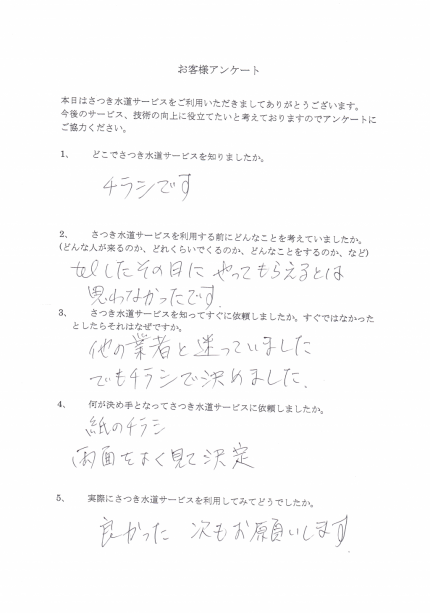 お客様アンケート
本日はさつき水道サービスをご利用いただきましてありがとうございます。
今後のサービス、技術の向上に役立てたいと考えておりますのでアンケートに
ご協力ください。
1、 どこでさつき水道サービスを知りましたか。
チラシです
2、 さつき水道サービスを利用する前にどんなことを考えていましたか。
(どんな人が来るのか、どれくらいでくるのか、どんなことをするのか、など)
telしたその日に やってもらえるとは
思わなかったです.
3、 さつき水道サービスを知ってすぐに依頼しましたか。すぐではなかった
としたらそれはなぜですか。
他の業者と迷っていました
でもチラシで決めました.
4、 何が決め手となってさつき水道サービスに依頼しましたか。
紙のチラシ
両面をよく見て決定
5、 実際にさつき水道サービスを利用してみてどうでしたか。
良かった 次もお願いします